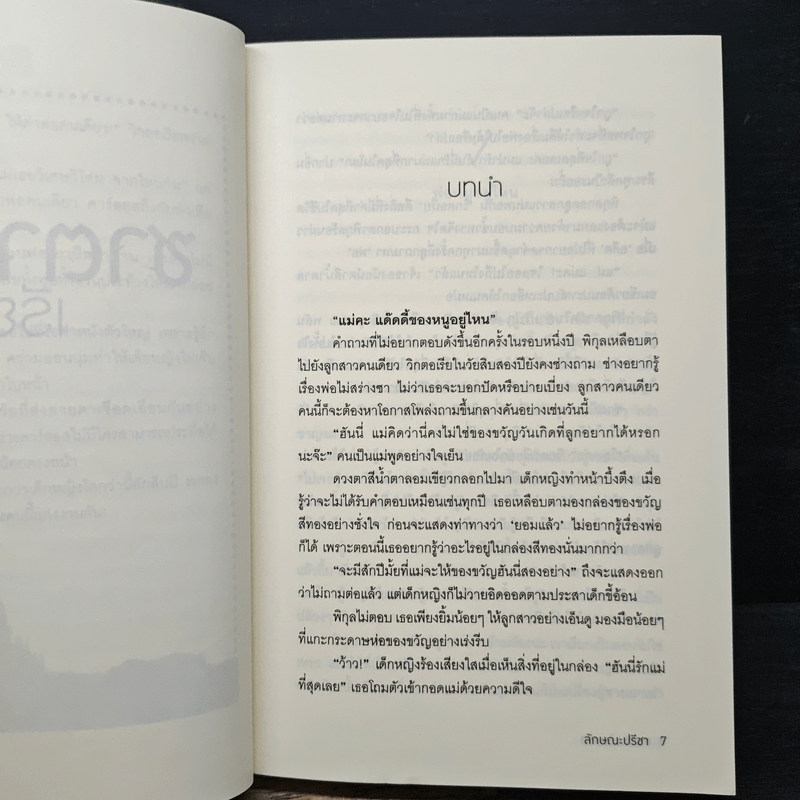 บทนำ
“แม่คะ แด๊ดดี้ของหนูอยู่ไหน”
คำถามที่ไม่อยากตอบดังขึ้นอีกครั้งในรอบหนึ่งปี พิกุลเหลือบตา
ไปยังลูกสาวคนเดียว วิกตอเรียในวัยสิบสองปียังคงช่างถาม ช่างอยากรู้
เรื่องพ่อไม่สร่างซา ไม่ว่าเธอจะบอกปัดหรือบ่ายเบี่ยง ลูกสาวคนเดียว
คนนี้ก็จะต้องหาโอกาสโพล่งถามขึ้นกลางคันอย่างเช่นวันนี้
“ฮันนี่ แม่คิดว่านี่คงไม่ใช่ของขวัญวันเกิดที่ลูกอยากได้หรอก
นะจ๊ะ” คนเป็นแม่พูดอย่างใจเย็น
ดวงตาสีน้ำตาลอมเขียวกลอกไปมา เด็กหญิงทำหน้าบึ้งตึง เมื่อ
รู้ว่าจะไม่ได้รับคำตอบเหมือนเช่นทุกปี เธอเหลือบตามองกล่องของขวัญ
สีทองอย่างชั่งใจ ก่อนจะแสดงท่าทางว่า ‘ยอมแล้ว’ ไม่อยากรู้เรื่องพ่อ
ก็ได้ เพราะตอนนี้เธออยากรู้ว่าอะไรอยู่ในกล่องสีทองนั่นมากกว่า
“จะมีสักปีมั้ยที่แม่จะให้ของขวัญฮันนี่สองอย่าง” ถึงจะแสดงออก
ว่าไม่ถามต่อแล้ว แต่เด็กหญิงก็ไม่วายอิดออดตามประสาเด็กขี้อ้อน
พิกุลไม่ตอบ เธอเพียงยิ้มน้อยๆ ให้ลูกสาวอย่างเอ็นดู มองมือน้อยๆ
ที่แกะกระดาษห่อของขวัญอย่างเร่งรีบ
“ว้าว!” เด็กหญิงร้องเสียงใสเมื่อเห็นสิ่งที่อยู่ในกล่อง “ฮันนี่รักแม่
ที่สุดเลย” เธอโถมตัวเข้ากอดแม่ด้วยความดีใจ
ลักษณะปรีชา 7